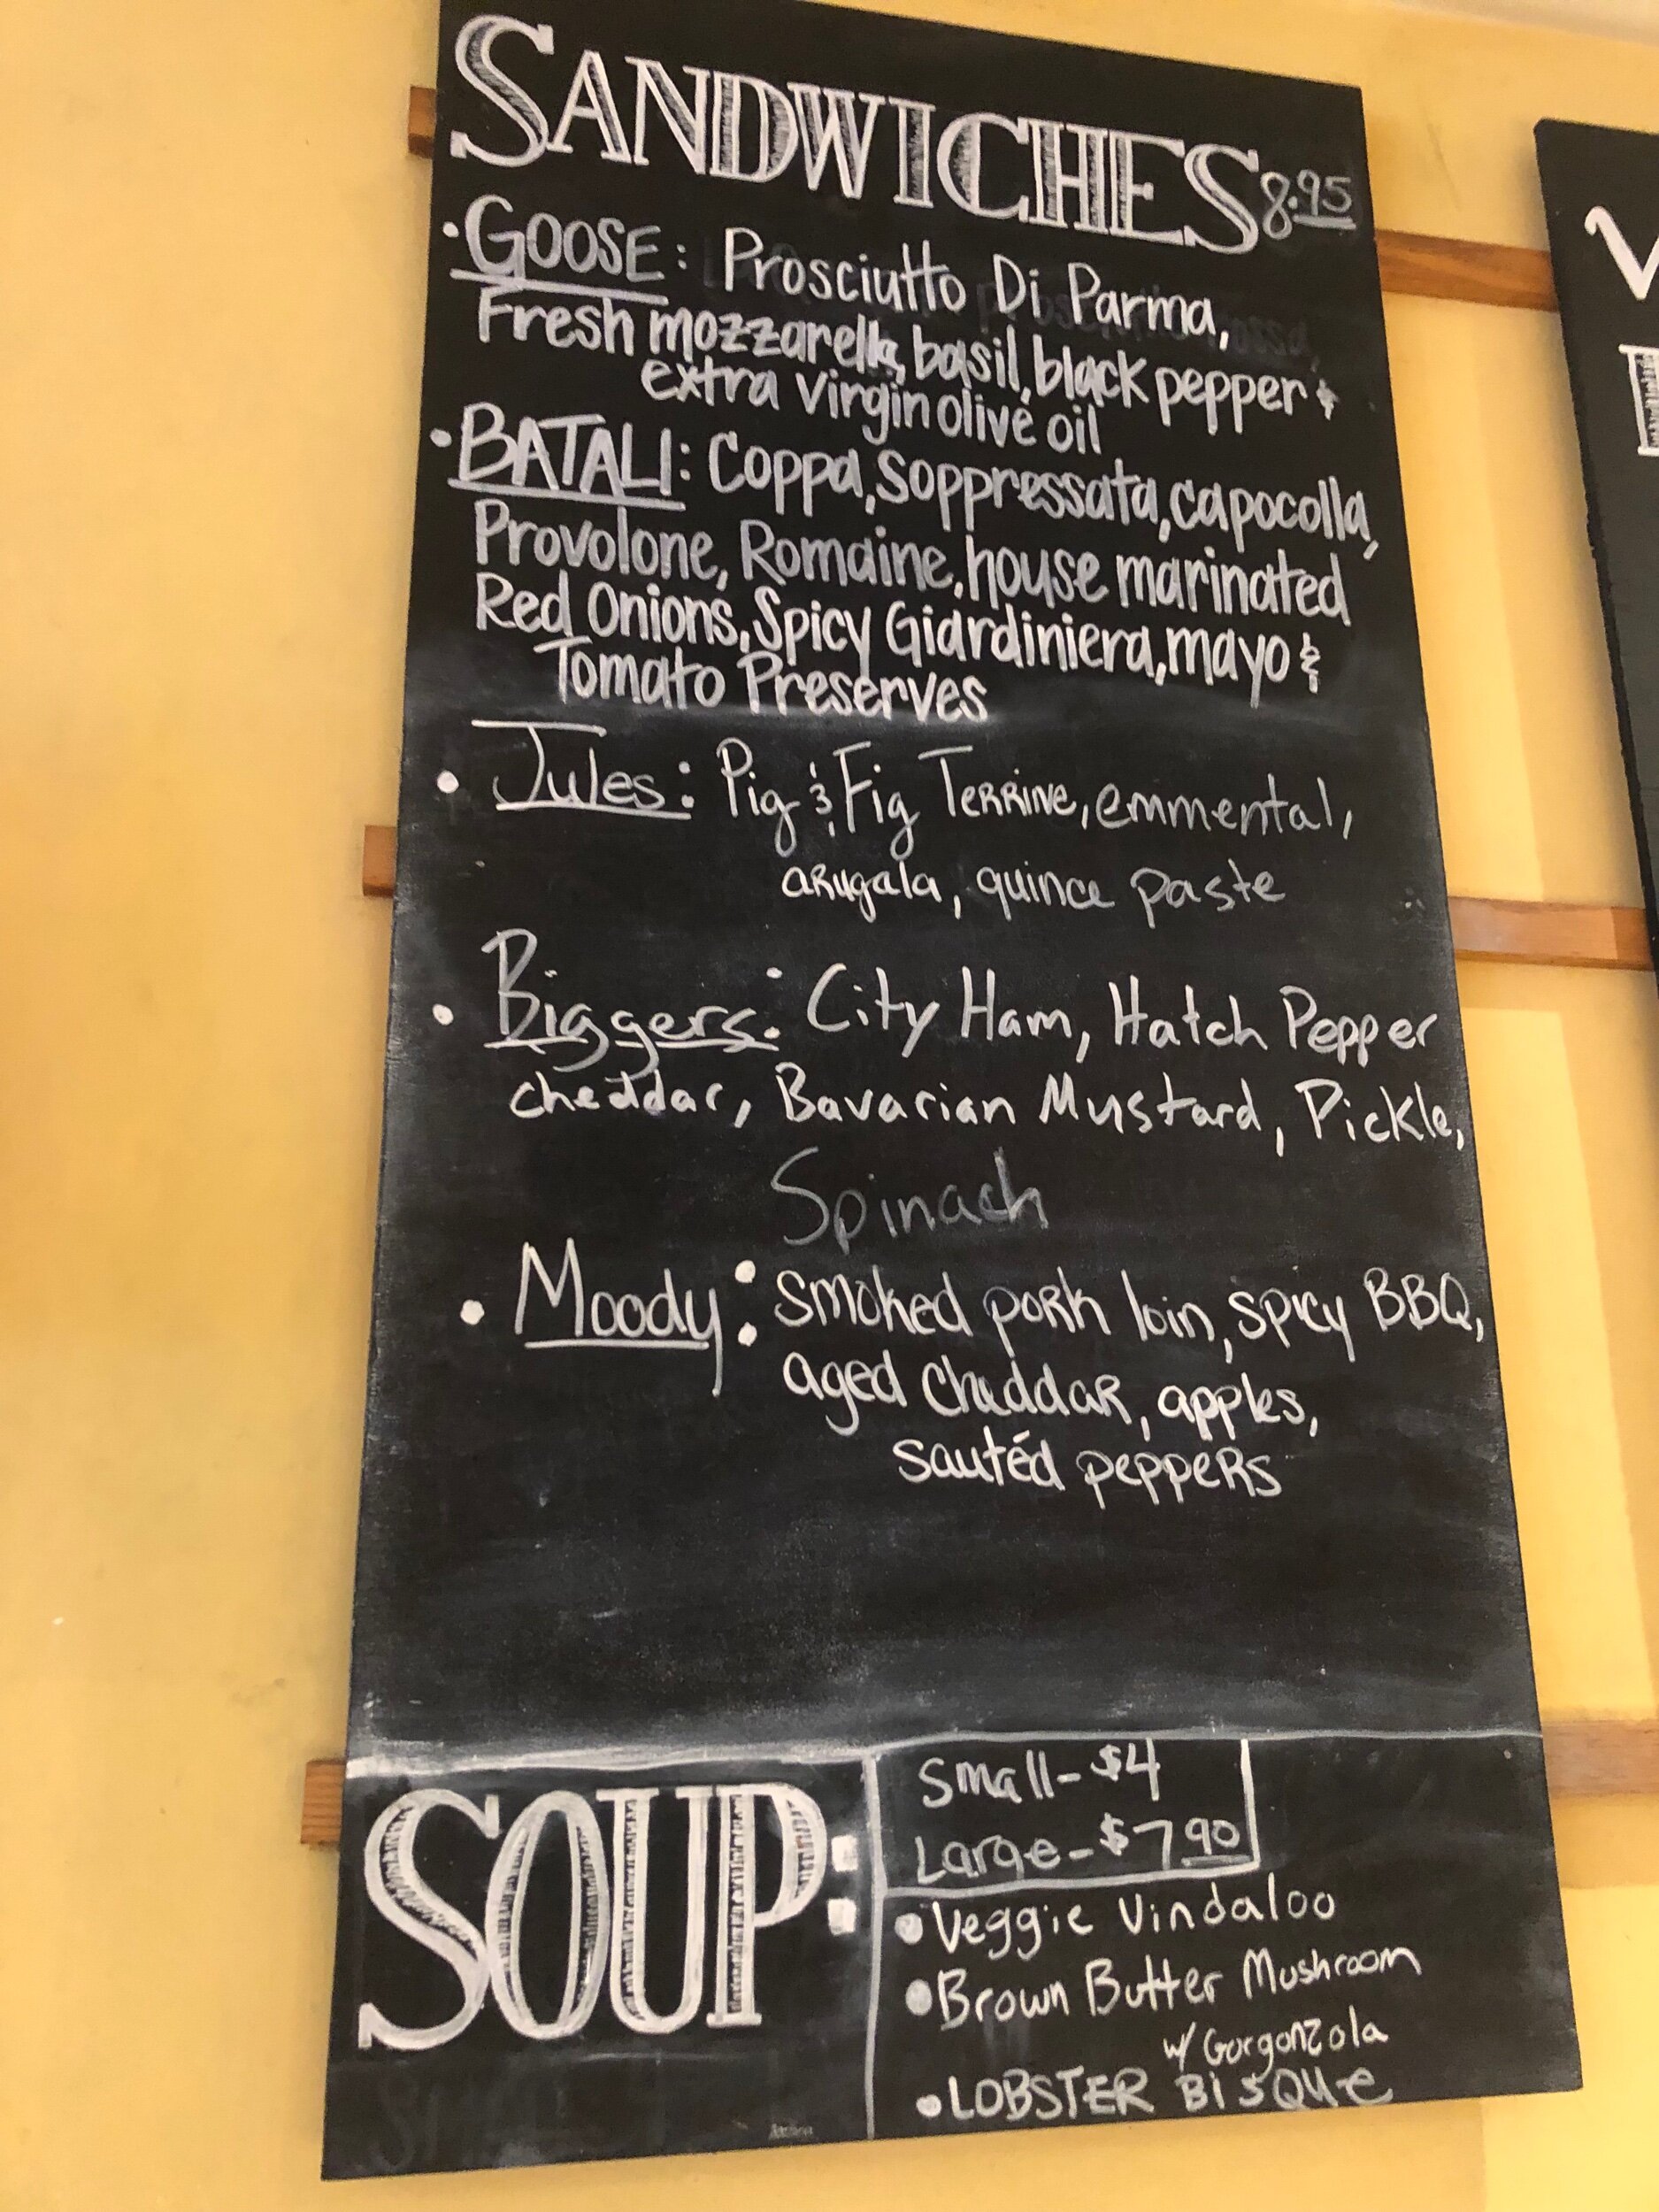 SANDWICHES 8.95
• GOOSE: Prosciutto Di Parma,
Fresh mozzarella, basil, black pepper &
extra virgin olive oil
• BATALI: Coppa, Soppressata, capocolla,
Provolone, Romaine, house marinated
Red Onions, Spicy Giardiniera, mayo &
Tomato Preserves
• Jules: Pig & Fig Terrine, emmental,
arugala, quince paste
• Biggers: City Ham, Hatch Pepper
cheddar, Bavarian Mustard, Pickle,
Spinach
• Moody: smoked pork loin, spicy BBQ,
aged cheddar, apples,
sautéd peppers
SOUP:
Small - $4
Large - $7.90
• Veggie Vindaloo
• Brown Butter Mushroom
w/ Gorgonzola
• LOBSTER BiSQUe